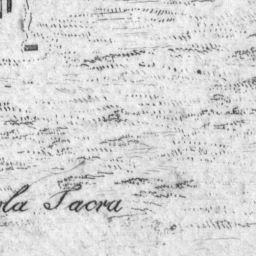 ola Sacra